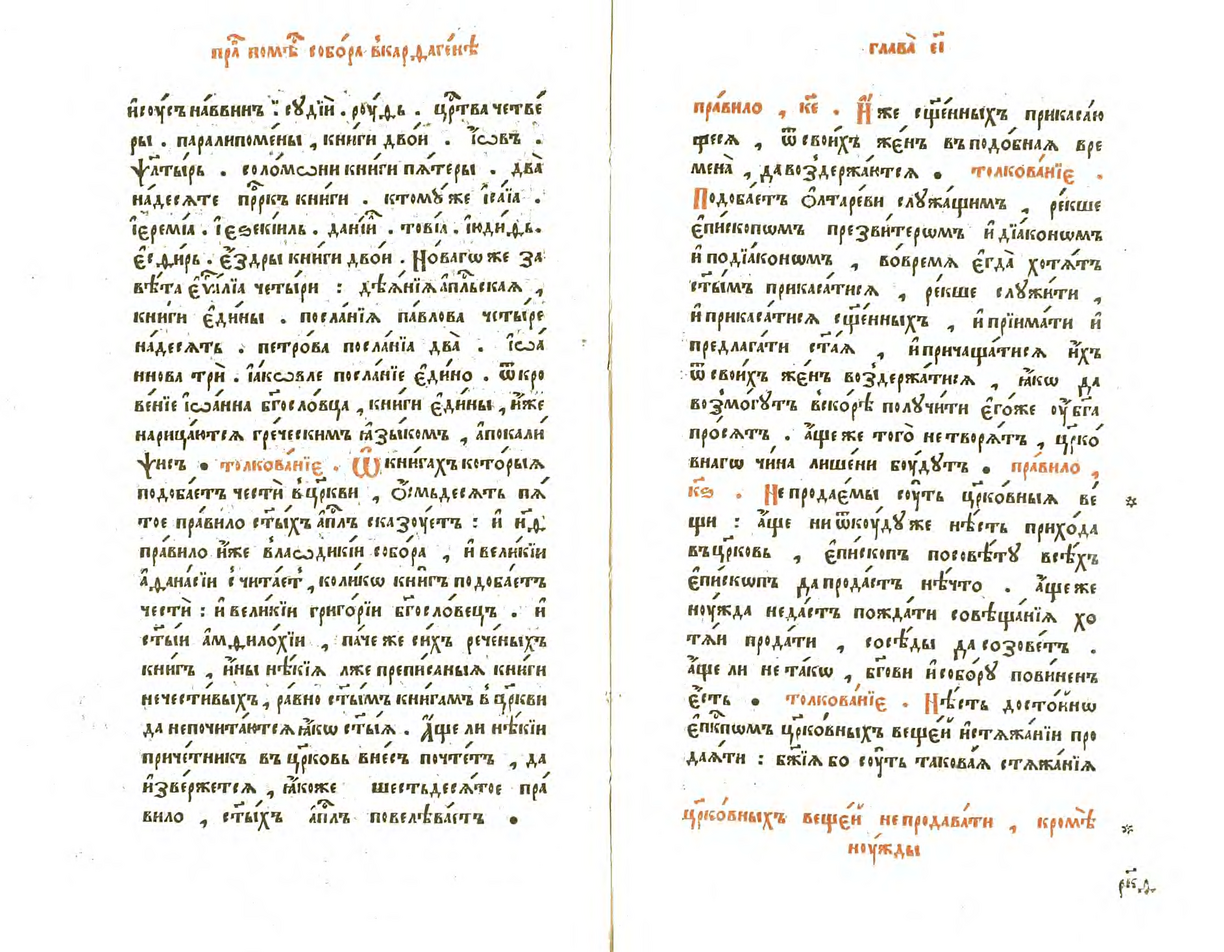 пра҇ пом̾ѣ҇ собо́ра вкарѳаге́нѣ
и҆соу́съ на́ввинъ . соудїи̑ . роу́ѳь . црⷭ҇тва четве́
ры . паралипоме́ны , кни́ги двои́ . і҆́ѡвъ .
ѱалты́рь . соломѡ́ни книги пѧ́теры . два̀
на́десѧте прⷪ҇ркъ книги . ктомꙋ́ же і҆са́їа .
і҆еремі́а . і҆езекі́иль . данїи́л . тові́а . і҆юди́ѳь .
є҆сѳи́рь . є҆́здры книги двои́ . Но́вагѡ же за
вѣ́та є҆ѵⷢ҇лїа четы́ри : дѣѧ́нїѧ а҆пⷭ҇льскаѧ ,
книги є҆ди́ны . посла́нїѧ па́влова четы́ре
на́десѧть . петро́ва посла́нїа два̀ . і҆ѡа́
ннова три̑ . і҆а́кѡвле посла́нїе є҆ди́но . ѿкро
ве́нїе і҆ѡа́нна бг҃осло́вца , книги є҆ди́ны , и҆́же
нарица́ютсѧ гре́ческимъ ꙗ҆зы́комъ , а҆покали́
ѱисъ . толкова́нїе . Ѡ҆ кни́гахъ кото́рыѧ
подоба́етъ чести́ в цр҃кви , ѻ҆смьдесѧ́тъ пѧ́
тое пра́вило ст҃ы́хъ а҆пⷭ҇лъ сказоу́етъ : и҆ н҃ѳ
пра́вило и҆́же в лаѡдикі́и собо́ра , и҆ вели́кїи
а҆ѳана́сїи счита́етъ , коли́кѡ кни́гъ подоба́етъ
чести̑ : и҆ вели́кїи григо́рїи бг҃осло́вецъ . и҆
ст҃ы́и а҆мѳило́хїи , па́че же си́хъ рече́ныхъ
кни́гъ , и҆́ны нѣ́кїѧ лже преписаныѧ кни́ги
нечести́выхъ , ра́вно ст҃ы́мъ кни́гамъ в цр҃кви
да не почита́ютсѧ ꙗ҆́кѡ ст҃ы́ѧ . А҆́ще ли нѣ́кїи
приче́тникъ въ цр҃ковь вне́съ почте́тъ , да
и҆зве́ржетсѧ , ꙗ҆́коже шестьдесѧ́тое пра́
вило , ст҃ы́хъ а҆пⷭ҇лъ повелѣва́етъ .
глава̀ є҃і
пра́вило , к҃е . И҆̀же сщ҃е́нныхъ прикаса́ю
щесѧ , ѿ свои́хъ же́нъ въ подо́бнаѧ вре
мена̀ , да воз̾держа́тсѧ . толкова́нїе .
Подоба́етъ ѻ҆лтаре́ви слꙋжа́щимъ , ре́кше
є҆пи́скопѡмъ презви́терѡмъ и҆ дїа́конѡмъ
и҆ подїа́конѡмъ , во вре́мѧ є҆гда̀ хотѧ́тъ
ст҃ы́мъ прикаса́тисѧ , ре́кше слꙋжи́ти ,
и҆ прикаса́тисѧ сщ҃е́нныхъ , и҆ прїима́ти и҆
предлага́ти ст҃а́ѧ , и҆ причаща́тисѧ и҆́хъ
ѿ свои́хъ же́нъ воз̾держа́тисѧ , ꙗ҆́кѡ да
возмо́гꙋтъ вско́рѣ полꙋчи́ти є҆го́же оу҆ бг҃а
про́сѧтъ . а҆́ще же того̀ не творѧ́тъ , цр҃ко́
внагѡ чи́на лише́ни боу́дꙋтъ . пра́вило ,
к҃ѕ . Не продае́мы соу́ть цр҃ко́вныѧ ве́
щи : а҆́ще ни ѿкоу́дꙋ же нѣ́сть прихо́да
въ цр҃ковь , є҆пи́скопъ по совѣ́тꙋ всѣ́хъ
є҆пи́скопъ да прода́стъ нѣ́что . а҆́ще же
ноу́жда неда́стъ пожда́ти совѣща́нїѧ хо
тѧ́и прода́ти , сосѣ́ды да созове́тъ .
а҆́ще ли не та́кѡ , бг҃ови и҆ собо́рꙋ пови́ненъ
є҆́сть . толкова́нїе . Нѣ́сть досто́йнѡ
є҆пⷭ҇кпѡмъ цр҃ко́вныхъ веще́й и҆ стѧжа́нїи про
даѧ́ти : бж҃їѧ бо соу́ть такова́ѧ стѧжа́нїѧ
цр҃ко́вныхъ веще́й не продава́ти , кромѣ̀
ноу́жды
рк҃ѳ